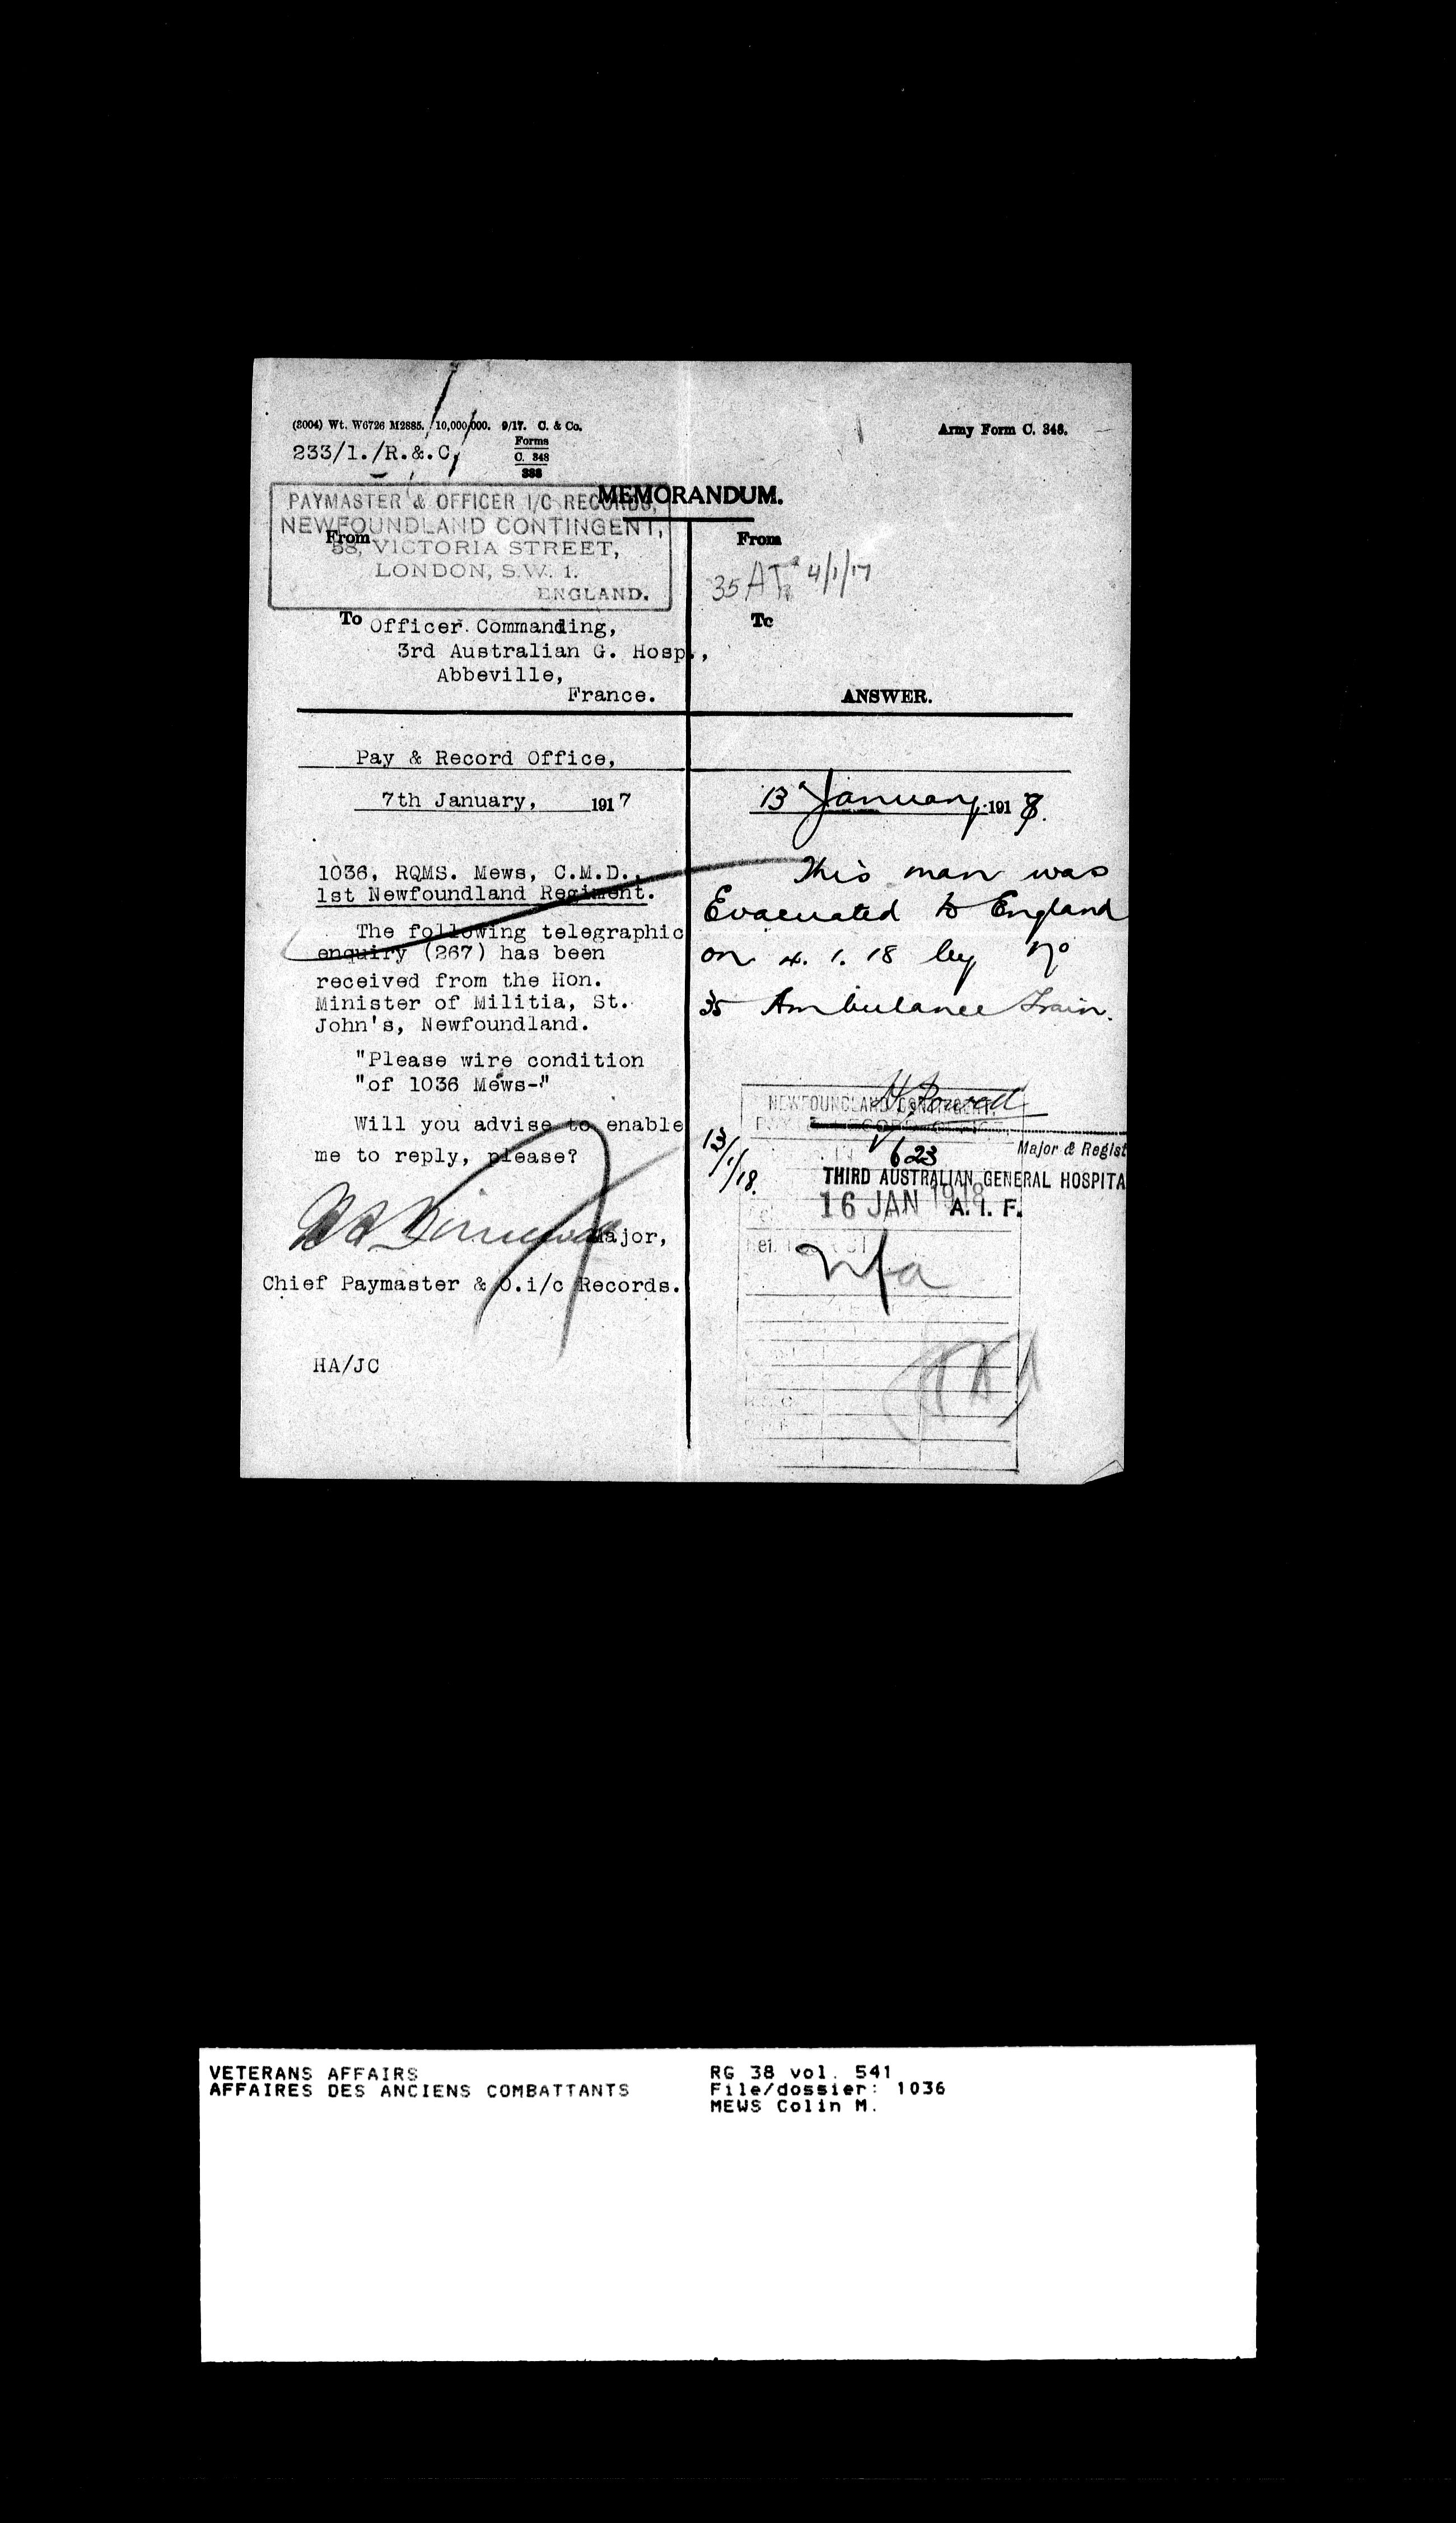 (8004) Wt. W6726 M2885. 10,000,000. 9/17. C. & Co.
Forms
C. 348
Army Form C. 348.
233/1./R.&.C.
MEMORANDUM.
PAYMASTER & OFFICER I/C RECORDS,
NEWFOUNDLAND CONTINGENT,
From
58, VICTORIA STREET,
LONDON, S.W. 1.
ENGLAND.
To Officer Commanding,
3rd Australian G. Hosp.,
Abbeville,
France.
Pay & Record Office,
7th January, 1917
1036, RQMS. Mews, C.M.D.,
1st Newfoundland Regiment.
The following telegraphic
enquiry (267) has been
received from the Hon.
Minister of Militia, St.
John's, Newfoundland.
"Please wire condition
"of 1036 Mews-"
Will you advise to enable
me to reply, please?
Major,
Chief Paymaster & O.i/c Records.
HA/JC
From
35 AT 4/1/17
To
ANSWER.
13 January, 1918.
This man was
Evacuated to England
on 4. 1. 18 by No
35 Ambulance Train.
NEWFOUNDLAND CONTINGENT,
Major & Regist
13/1/18.
623
THIRD AUSTRALIAN GENERAL HOSPITA
16 JAN 1918
A. I. F.
VETERANS AFFAIRS
AFFAIRES DES ANCIENS COMBATTANTS
RG 38 vol. 541
File/dossier: 1036
MEWS Colin M.